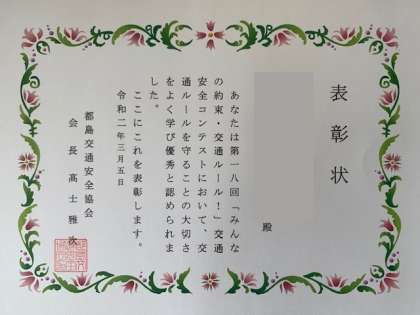 表彰状
殿
あなたは第一八回「みんな
の約束・交通ルール！」交通
安全コンテストにおいて、交
通ルールを守ることの大切さ
をよく学び優秀と認められま
した。
ここにこれを表彰します。
令和二年三月五日
都島交通安全協会
会長 髙士雅次